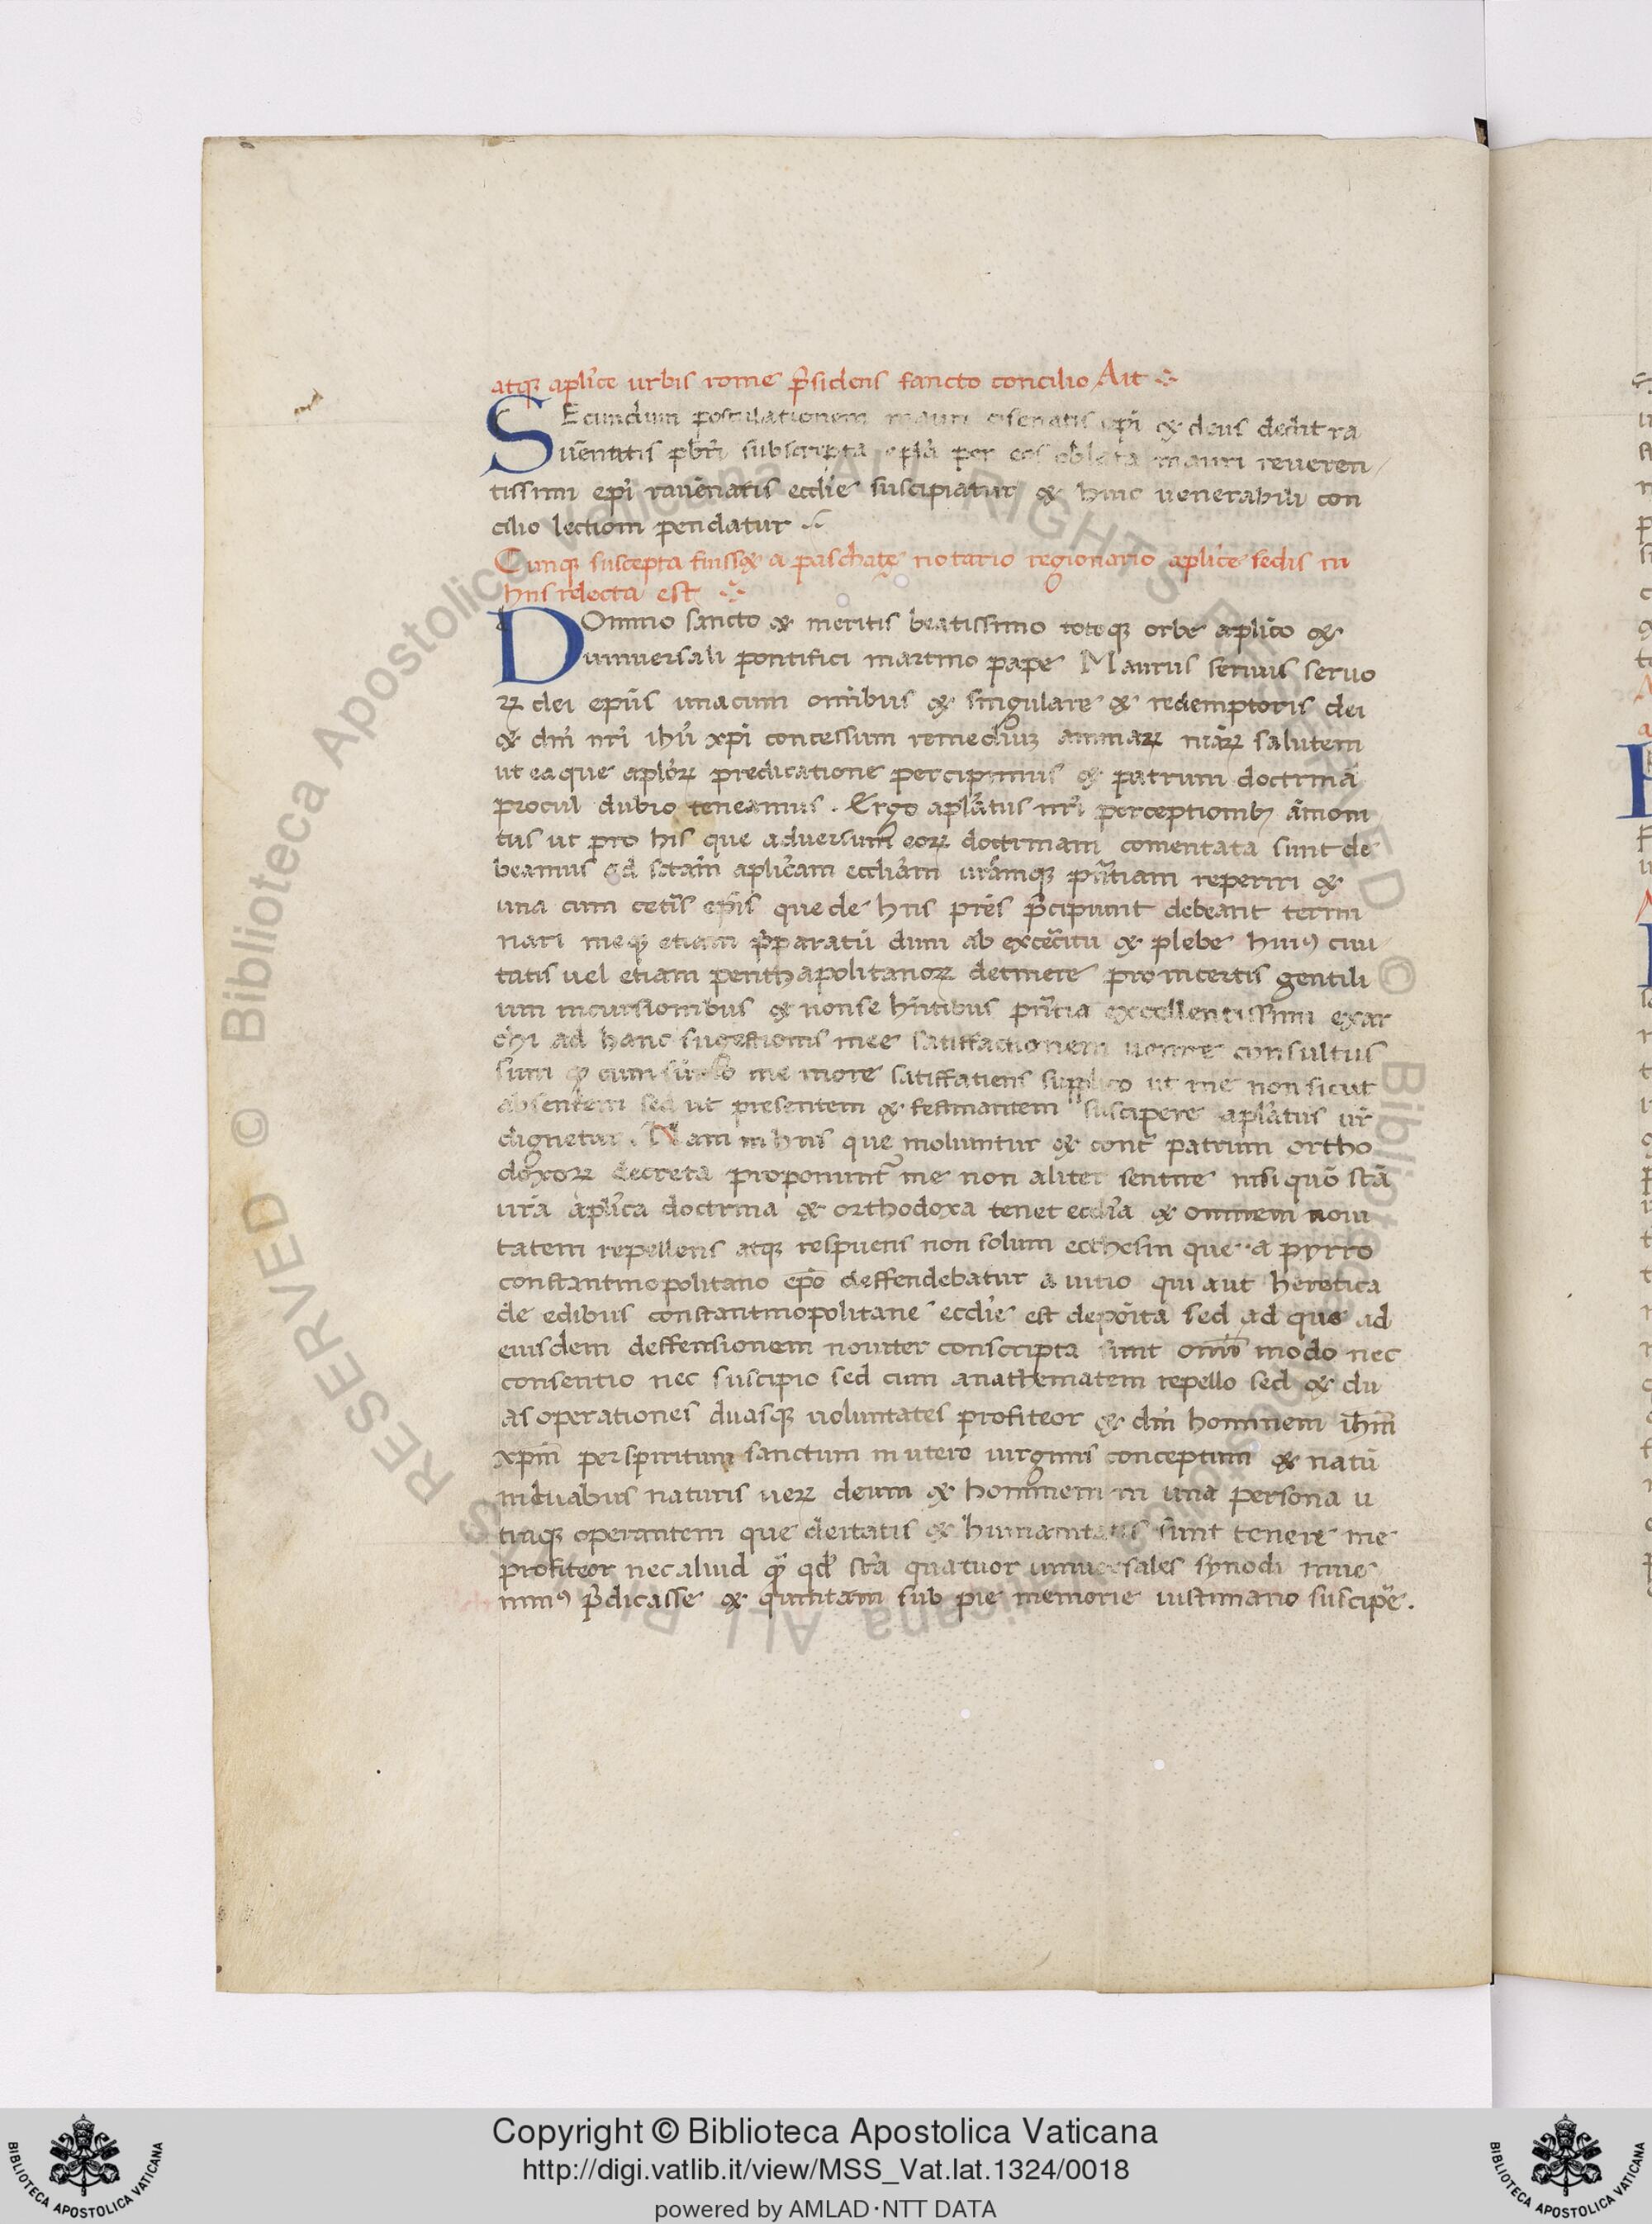 atqꝫ apl̓ice urbis rome p̄sidens sancto concilio Ait
SEcundum postulationem mauri cisenatis ep̄i & deus dedit ra
uēnatis pb̄ri subscripta epl̓a per eos oblata mauri reueren
tissimi ep̄i rauēnatis eccl̓ie suscipiatur & huic uenerabili con
cilio lectiom pendatur
Cunqꝫ suscepta fuiss& a paschate notario regionario apl̓ice sedis in
hiis relecta est
DOmino sancto & meritis beatissimo totoqꝫ orbe apl̓ico &
uniuersali pontifici martino pape Maurus seruus seruo
rꝝ dei ep̄us unacum om̄ibus & singulare & redemptoris dei
& dn̄i nr̄i ihū xp̄i concessum remediuꝫ animarꝝ nr̄arꝝ salutem
ut ea que apl̓orꝝ predicatione percipimus & patrum doctrinā
procul dubio teneamus . Ergo apl̓atus nr̄i perceptionibꝫ āmoni
tus ut pro his que aduersum eorꝝ doctrinam comentata sunt de
beamus ad sc̄tam apl̓icam eccl̓iam ur̄amqꝫ pn̄tiam reperiri &
una cum cet̄is ep̄is que de hiis pr̄es p̄cipiunt debeant termi
nari meqꝫ etiam p̄paratū dum ab exc̄ercitu & plebe huiꝰ ciui
tatis uel etiam penthapolitanorꝝ detinere pro incertis gentili
um incursionibus & non se hn̄tibus pn̄tia excellentissimi exar
chi ad hanc sugestionis mee satiffactionem uenire consultus
sum me more satiffatiens supplico ut me non sicut
absentem sed ut presentem & festinantem suscipere apl̓atus ur̄
dignetur . Nam in hiis que moliuntur & cont̄ patrum ortho
doxorꝝ decreta proponunt̄ me non aliter sentire nisi quō sc̄tā
ur̄a apl̓ica doctrina & orthodoxa tenet eccl̓ia & omnem noui
tatem repellens atqꝫ respuens non solum ecthesin que a pyrro
constantinopolitano ep̄o deffendebatur a uitio qui aut heretica
de edibus constantinopolitane eccl̓ie est depōita sed ad que ad
eiusdem deffensionem nouiter conscripta sunt om̄o modo nec
consentio nec suscipio sed cum anathematem repello sed & du
as operationes duasqꝫ uoluntates profiteor & dn̄i hominem ihm̄
xpm̄ per spiritum sanctum in utero uirginis conceptum & natū
induabus naturis uerꝝ deum & hominem in una persona u
traqꝫ operantem que deitatis & humanitatis sunt tenere me
profiteor nec aliud qͣ qd̓ sc̄ta quatuor uniuersales synodi inue
nimꝰ p̄dicasse & quintam sub pie memorie iustiniano suscip̄e.
Copyright © Biblioteca Apostolica Vaticana
http://digi.vatlib.it/view/MSS_Vat.lat.1324/0018
powered by AMLAD·NTT DATA